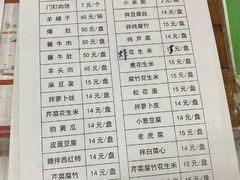 门钉肉饼 7元/个
羊蝎子 60元/锅
爆肚 50元/盘
酱牛肉 50元/盘
酱牛肚 50元/盘
羊头肉 45元/盘
麻豆腐 15元/盘
拌萝卜丝 14元/盘
芹菜花生米 14元/盘
拍黄瓜 14元/盘
皮蛋豆腐 14元/盘
糖拌西红柿 14元/盘
芹菜腐竹 15元/盘
小米粥
拌豆腐丝 14元/盘
拌纯腐竹 15元/盘
纯芹菜 14元/盘
炸花生米 元/盘
煮花生米 14元/盘
腐竹花生米 15元/盘
松花蛋 15元/盘
拌萝卜皮 14元/盘
小葱豆腐 14元/盘
老虎菜 14元/盘
拌白菜心 14元/盘
芹菜腐竹花生米 15元/盘